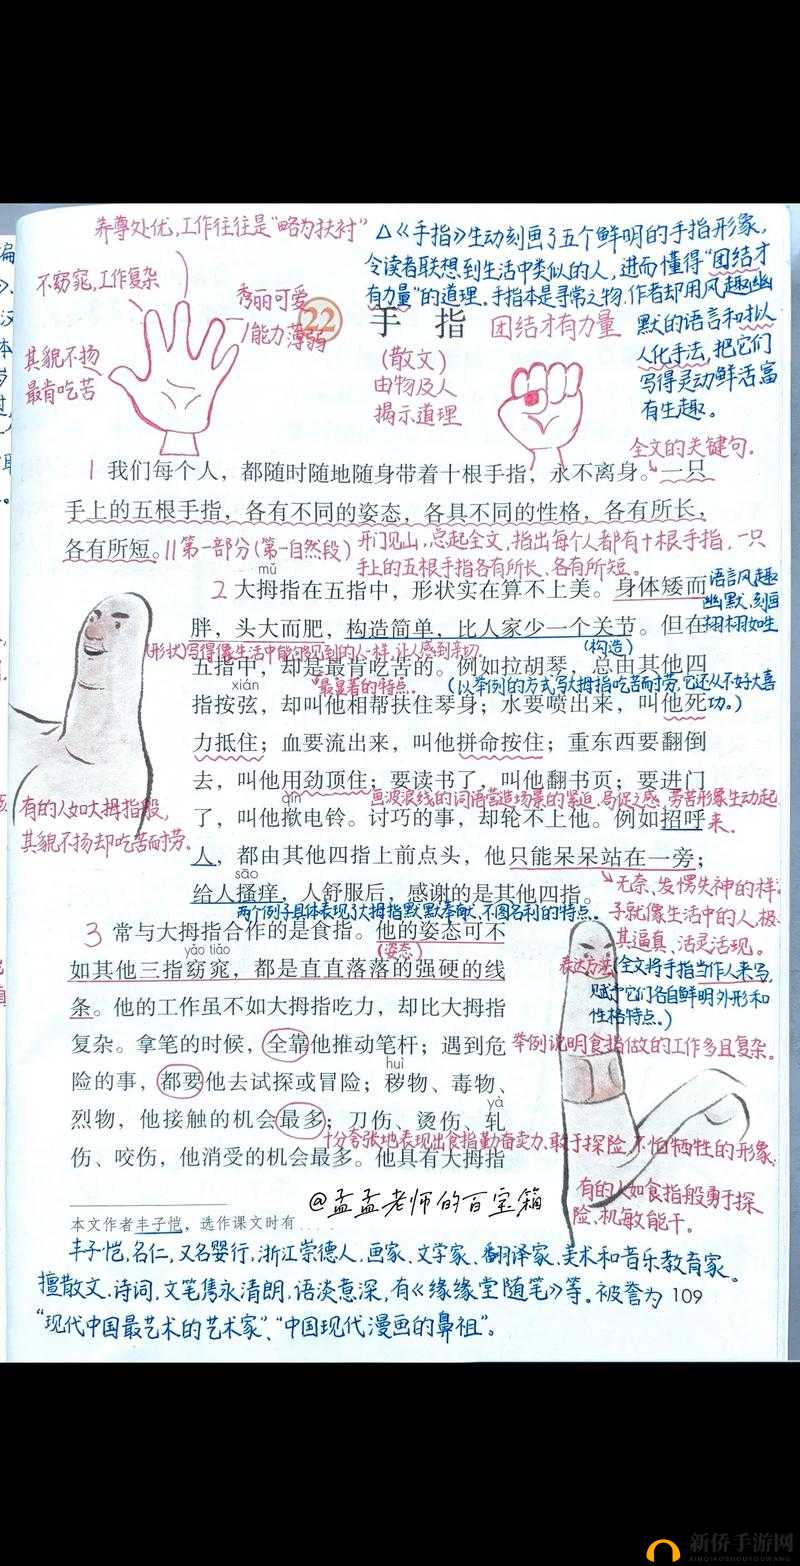 养尊处优,工作往往是“略为扶衬”
不窈窕,工作复杂
秀丽可爱
能力薄弱
其貌不扬
最肯吃苦
22
手 指
团结才有力量
(散文)
由物及人
揭示道理
△《手指》生动刻画了五个鲜明的手指形象,
令读者联想到生活中类似的人,进而懂得“团结才
有力量”的道理。手指本是寻常之物,作者却用风趣幽
默的语言和拟人
人化手法,把它们
写得灵动鲜活富
有生趣。
全文的关键句.
1 我们每个人,都随时随地随身带着十根手指,永不离身。一只
手上的五根手指,各有不同的姿态,各具不同的性格,各有所长,
各有所短。
∥第一部分(第一自然段)
开门见山,总起全文,指出每个人都有十根手指,一只
手上的五根手指各有所长、各有所短。
mǔ
2 大拇指在五指中,形状实在算不上美。身体矮而
语言风趣
幽默,刻画
栩栩如生
胖,头大而肥,构造简单,比人家少一个关节。但在
(形状)写得像生活中能够见到的人一样,让人感到亲切.
(构造)
五指中,却是最肯吃苦的。例如拉胡琴,总由其他四
xián
最显著的特点.
(以举例的方式写大拇指吃苦而耐劳,它还从不好大喜
功。)
指按弦,却叫他相帮扶住琴身;水要喷出来,叫他死
力抵住;血要流出来,叫他拼命按住;重东西要翻倒
去,叫他用劲顶住;要读书了,叫他翻书页;要进门
qìn
画波浪线的词语营造场景的紧迫、局促之感,劳苦形象生动起
来.
了,叫他揿电铃。讨巧的事,却轮不上他。例如招呼
人,都由其他四指上前点头,他只能呆呆站在一旁;
sāo
给人搔痒,人舒服后,感谢的是其他四指。
两个例子具体表现了大拇指默默奉献、不图名利的特点.
无奈、发愣失神的样
子就像生活中的人,极
其逼真、活灵活现。
有的人如大拇指般,
其貌不扬却吃苦而耐劳.
3 常与大拇指合作的是食指。他的姿态可不
yáo tiǎo
(姿态)
如其他三指窈窕,都是直直落落的强硬的线
条。他的工作虽不如大拇指吃力,却比大拇指
复杂。拿笔的时候,全靠他推动笔杆;遇到危
huì
险的事,都要他去试探或冒险;秽物、毒物、
yà
烈物,他接触的机会最多;刀伤、烫伤、轧
十分夸张地表现出食指勤奋卖力,敢于探险,不怕牺牲的形象.
伤、咬伤,他消受的机会最多。他具有大拇指
表达方法
(全文将手指当作人来写,
赋予它们各自鲜明外形和
性格特点。)
举例说明食指做的工作多且复杂。
有的人如食指般勇于探
险、机敏能干。
@孟孟老师的百宝箱
本文作者丰子恺,选作课文时有....
丰子恺,名仁,又名婴行,浙江崇德人,画家、文学家、翻译家、美术和音乐教育家。
擅散文、诗词,文笔隽永清朗,语淡意深,有《缘缘堂随笔》等。被誉为
109
“现代中国最艺术的艺术家”、“中国现代漫画的鼻祖”。
新侨手游网
XINQIAOSHOUYOUWANG